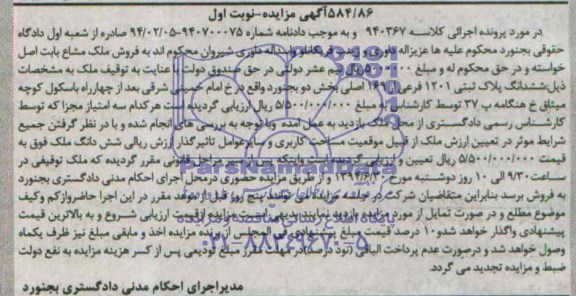 ۵۸۴/۸۶آگهی مزایده-نوبت اول
در مورد پرونده اجرائی کلاسه ۹۴۰۳۶۷ و به موجب دادنامه شماره ۹۴۰۷۰۰۰۷۵-۹۴/۰۲/۰۵ صادره از شعبه اول دادگاه
حقوقی بجنورد محکوم علیه ها عزیزاله داوری و یداله داوری شیروان محکوم اند به فروش ملک مشاع بابت اصل
خواسته و در حق محکوم له و مبلغ نیم عشر دولتی در حق صندوق دولت با عنایت به توقیف ملک به مشخصات
ذیل:ششدانگ پلاک ثبتی ۱۲۰۱ فرعی از ۱۶۹ اصلی بخش دو بجنورد واقع در خ امام خمینی شرقی بعد از چهارراه باسکول کوچه
میثاق خ هنگامه پ ۳۷ توسط کارشناس به مبلغ ۵/۵۰۰/۰۰۰/۰۰۰ ریال ارزیابی گردیده است هرکدام سه امتیاز مجزا که توسط
کارشناس رسمی دادگستری از محل ملک بازدید به عمل آمده وبا توجه به بررسی های انجام شده و با در نظر گرفتن جمیع
شرایط موثر در تعیین ارزش ملک از قبیل موقعیت مساحت کاربری و سایر عوامل تاثیرگذار ارزش ریالی شش دانگ ملک فوق به
قیمت ۵/۵۰۰/۰۰۰/۰۰۰ ریال تعیین و ارزیابی گردیده است واینکه پس از سیر مراحل قانونی مقرر گردیده که ملک توقیفی در
ساعت ۹/۳۰ الی ۱۰ روز دوشنبه مورخ ۱۳۹۴/۶/۳۰ از طریق مزایده حضوری در محل اجرای احکام مدنی دادگستری بجنورد
به فروش برسد بنابراین متقاضیان شرکت در جلسه مزایده می توانند پنج روز قبل از موعد مقرر در این اجرا حاضرواز کم وکیف
موضوع مطلع و در صورت تمایل از مورد مزایده بازدید نمایند بدیهی است مزایده از قیمت ارزیابی شروع و به بالاترین قیمت
پیشنهادی واگذار خواهد شد و۱۰ درصد قیمت مبلغ پیشنهادی فی المجلس از برنده مزایده اخذ و مابقی مبلغ نیز ظرف یکماه
وصول خواهد شد و درصورت عدم پرداخت الباقی (نود درصد)در مهلت مقرر مبلغ تودیعی پس از کسر هزینه مزایده به نفع دولت
ضبط و مزایده تجدید می گردد.
مدیراجرای احکام مدنی دادگستری بجنورد
ParsNamadData
۰۲۱-۸۸۳۴۹۶۷۰-۵